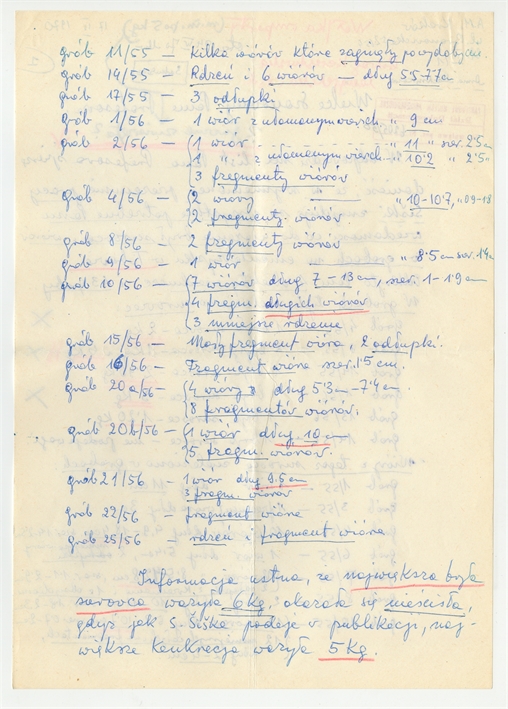 grób 11/55 — kilka wiórów które zaginęły
grób 14/55 — Rdzeń i 6 wiórów — dług 5.5-7.7 cm
grób 17/55 — 3 odłupki
grób 1/56 — 1 wiór z ułamanym wierzch. " 9 cm
grób 2/56 — 1 wiór ———— " 11 " szer. 2.5 cm
1 " z ułamanym wierzch. " 10.2 " 2.5 "
3 fragmenty wiórów
grób 4/56 — 2 wióry ——— " 10-10.7, " 0.9-1.8
2 fragmenty. wiórów
grób 8/56 — 2 fragmenty wiórów
grób 9/56 — 1 wiór " 8.5 cm szer. 1.4 cm
grób 10/56 — 7 wiórów dług 7 - 13 cm, szer. 1-1.9 cm
4 fragm. długich wiórów
3 mniejsze rdzenie
grób 15/56 — Mały fragment wióra, 2 odłupki.
grób 16/56 — Fragment wióra szer. 1.5 cm.
grób 20a/56 — 4 wióry dług 5.3 cm - 7.4 cm.
8 fragmentów wiórów.
grób 20b/56 — 1 wiór dług 10 cm
5 fragm. wiórów.
grób 21/56 — 1 wiór dług 9.5 cm
3 fragm. wiórów
grób 22/56 — fragment wióra
grób 25/56 — rdzeń i fragment wióra
Informacja ustna, że największa bryła
surowca ważyła 6 kg, okazała się nieścisła,
gdyż jak S. Šiška podaje w publikacji, naj-
większa konkrecja ważyła 5 kg.